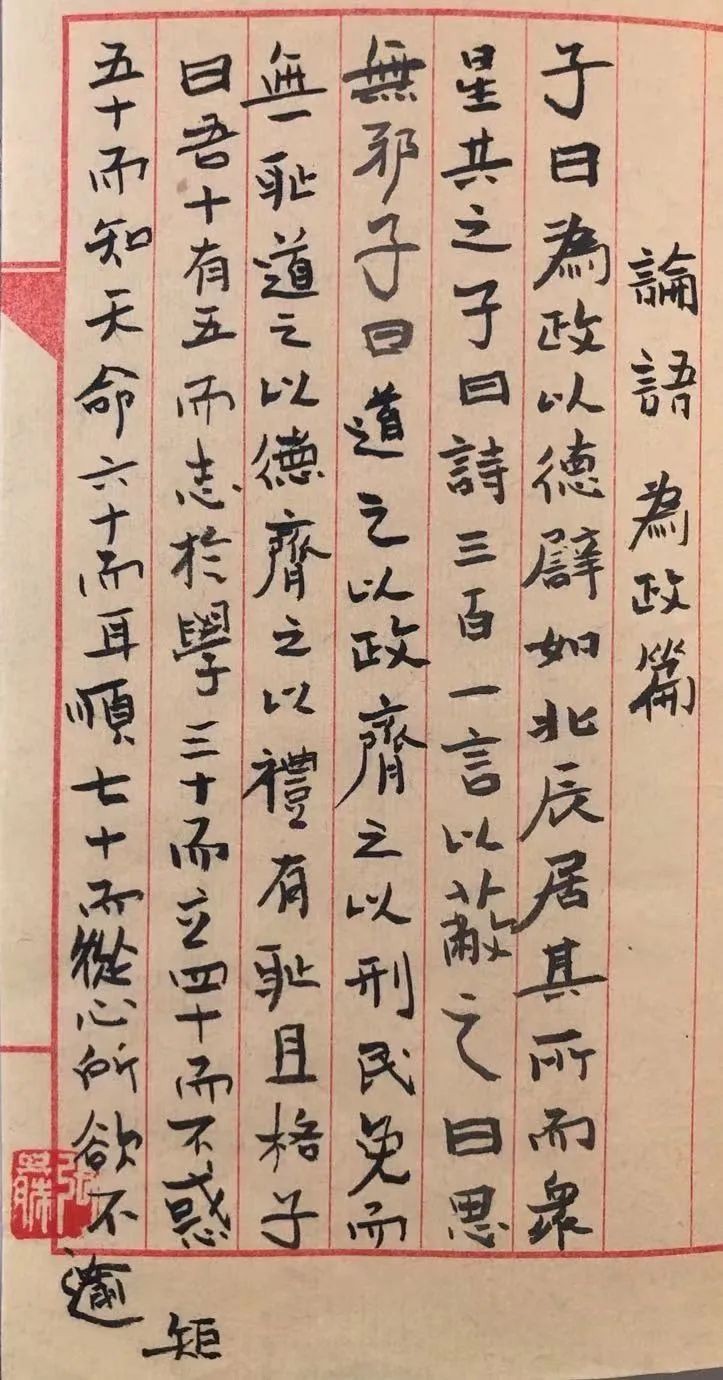 論語為政篇
子曰為政以德譬如北辰居其所而衆
星共之子曰詩三百一言以蔽之曰思
無邪子曰道之以政齊之以刑民免而
無耻道之以德齊之以禮有耻且格子
曰吾十有五而志於學三十而立四十而不惑
五十而知天命六十而耳順七十而從心所欲不
逾矩